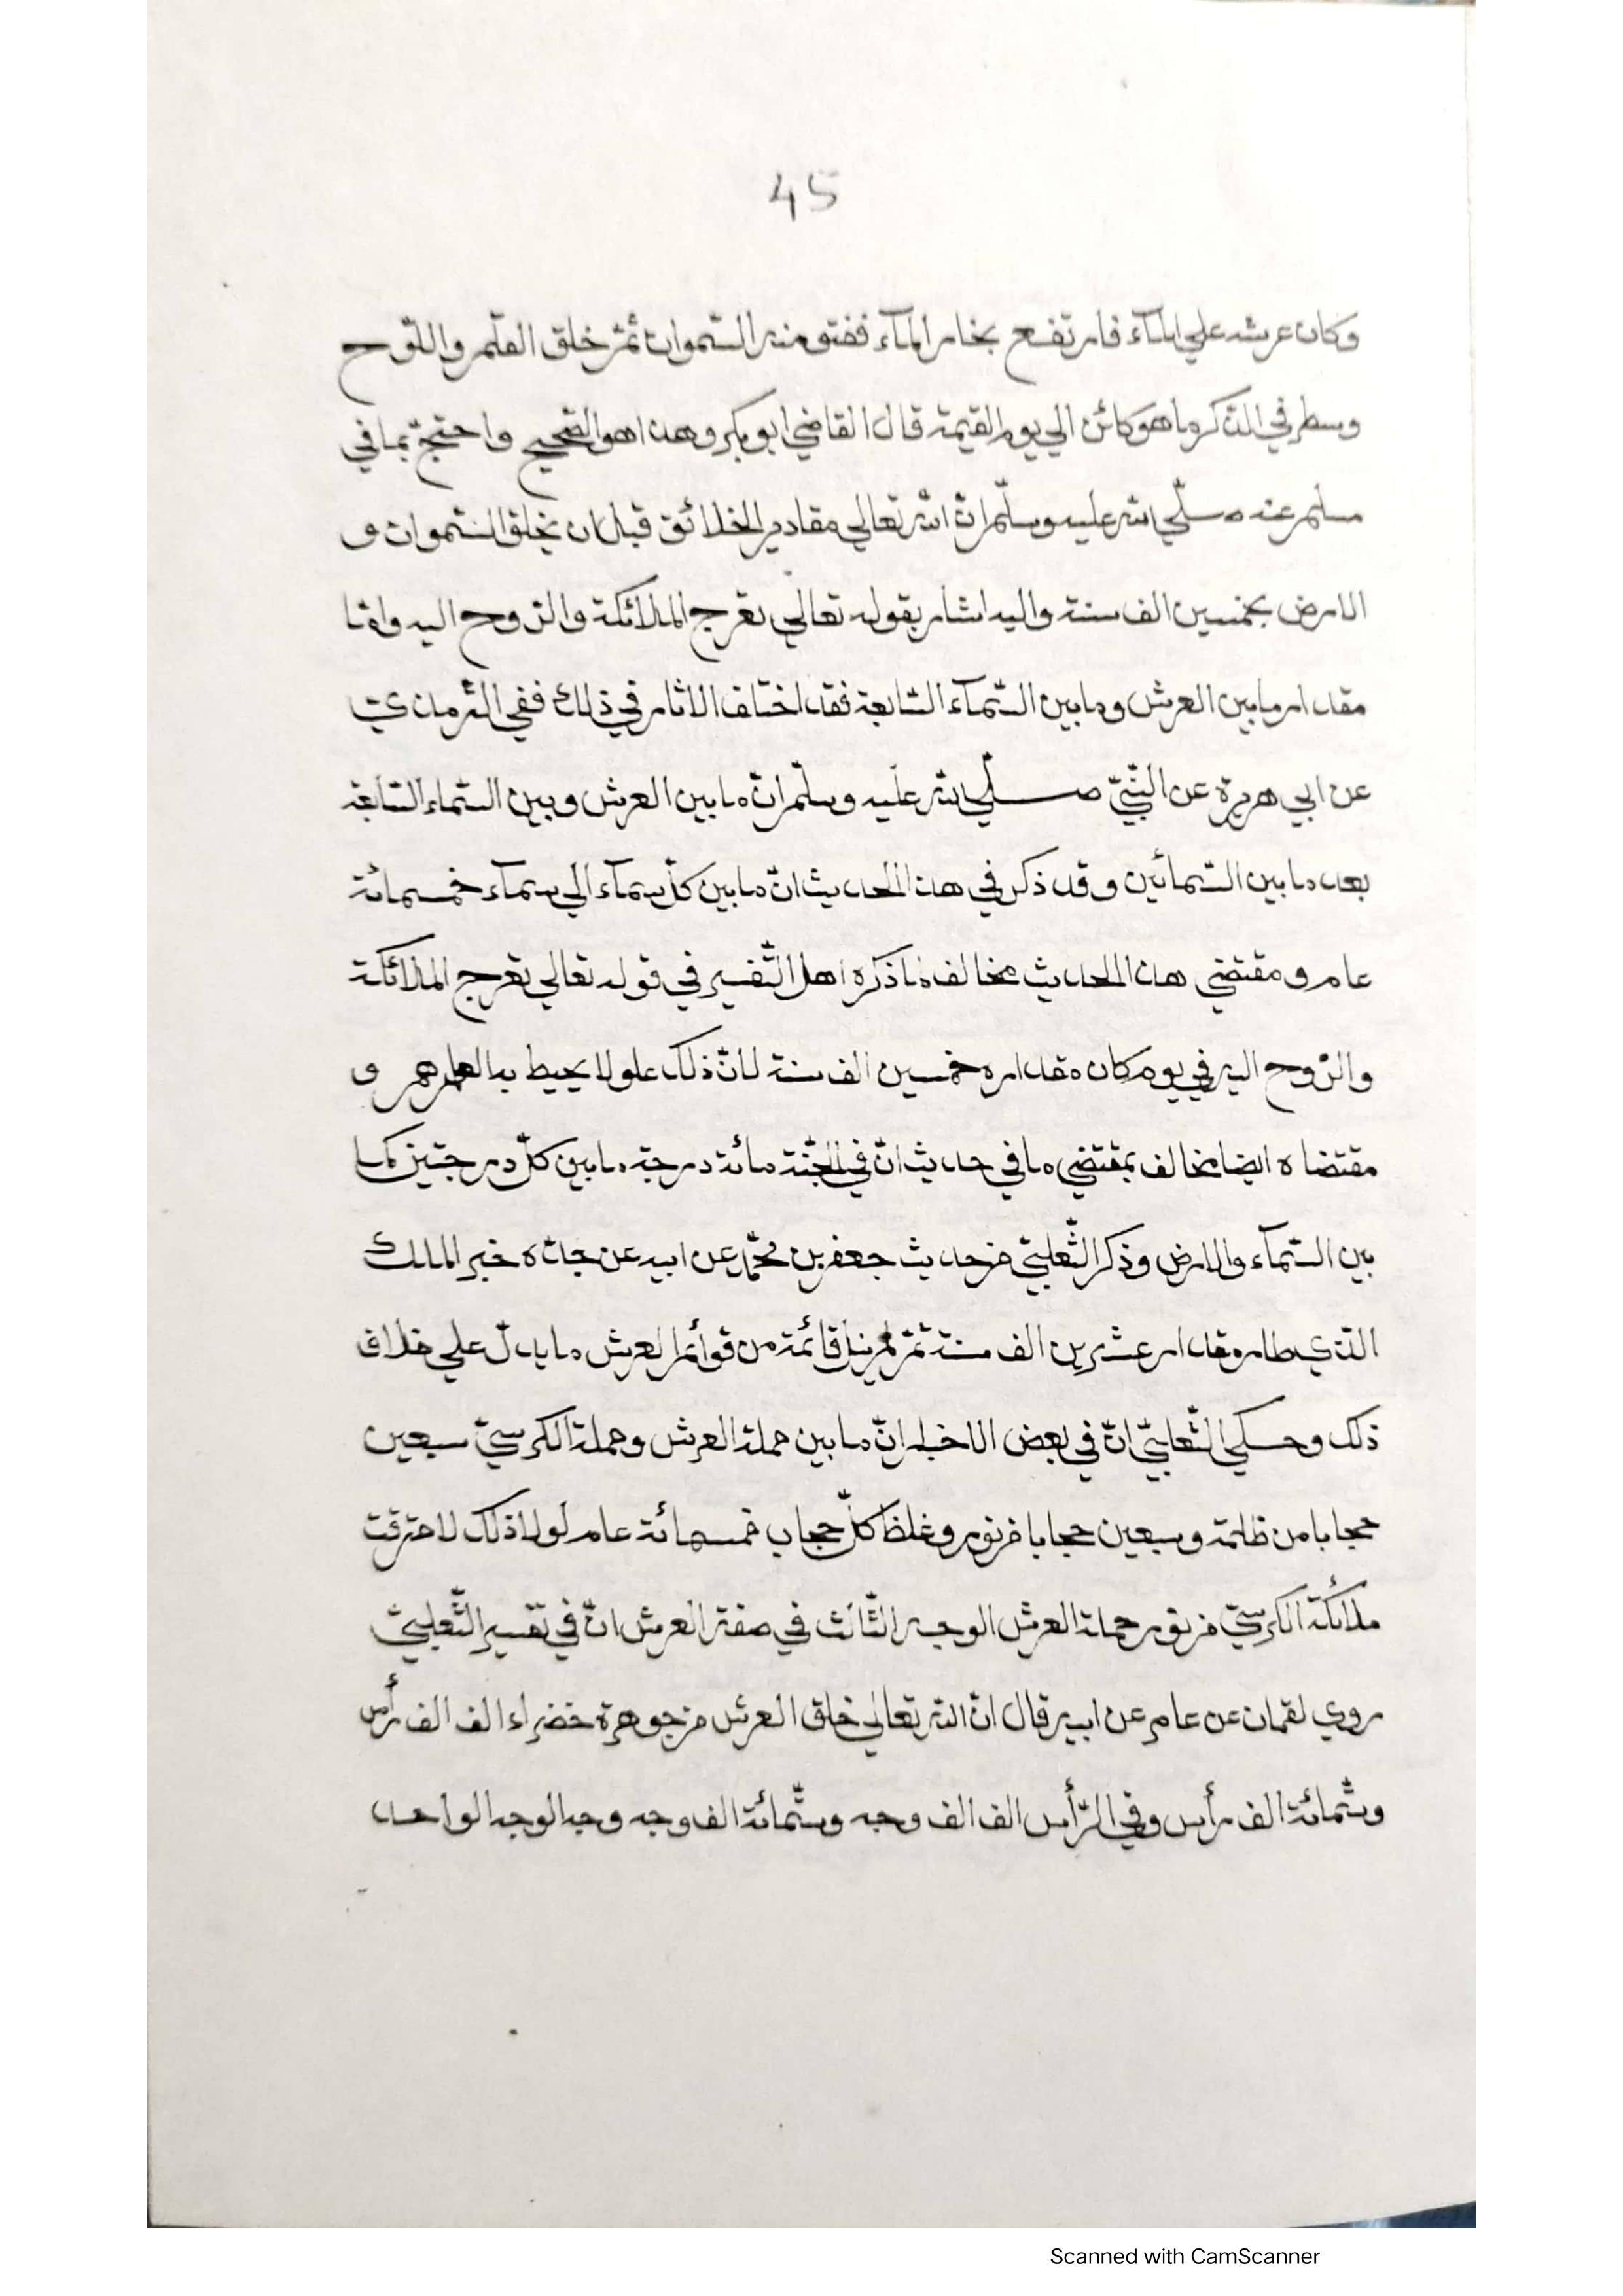 45
وكان عرشه علي الماء فارتفع بخار الماء ففتق منه السّموات ثمّ خلق القلم واللّوح
وسطر في الذّكر ما هو كائن الي يوم القيمة قال القاضي ابو بكر وهذا هو الصّحيح واحتجّ بما في
مسلم عنه صلّي الله عليه وسلّم انّ الله تعالي مقادير الخلائق قبل ان يخلق السّموات و
الارض بخمسين الف سنة واليه اشار بقوله تعالي تعرج الملائكة والرّوح اليه وامّا
مقدار ما بين العرش وما بين السّمآء السّابعة فقد اختلف الاثار في ذلك ففي التّرمذيّ
عن ابي هريرة عن النّبيّ صلّي الله عليه وسلّم انّ ما بين العرش وبين السّماء السّابعة
بعد ما بين السّمائين وقد ذكر في هذا الحديث انّ ما بين كلّ سمآء الي سمآء خمسمائة
عام ومقتضي هذا الحديث مخالف لما ذكره اهل التّفسير في قوله تعالي تعرج الملائكة
والرّوح اليه في يوم كان مقداره خمسين الف سنة لانّ ذلك علو لا يحيط به و
مقتضاه ايضا مخالف بمقتضي ما في حديث انّ في الجنّة مائة درجة ما بين كلّ درجتين كما
بين السّمآء والارض وذكر الثّعلبيّ من حديث جعفر بن محمّد عن ابيه عن جدّه خبر الملك
الّذي طار مقدار عشرين الف سنة ثمّ لم ينل قائمة من قوائم العرش ما يدلّ علي خلاف
ذلك وحكي الثّعلبيّ انّ في بعض الاخبار انّ ما بين حملة العرش وحملة الكرسيّ سبعين
حجابا من ظلمة وسبعين حجابا من نور وغلظ كلّ حجاب خمسمائة عام لولا ذلك لاحترقت
ملائكة الكرسيّ من نور حملة العرش الوجه الثّالث في صفة العرش انّ في تفسير الثّعلبيّ
روي لقمان عن عامر عن ابيه قال انّ الله تعالي خلق العرش من جوهرة خضراء الف الف رأس
وستّمائة الف رأس وفي الرّأس الف الف وجه وستّمائة الف وجه وجه الوجه الواحد
Scanned with CamScanner